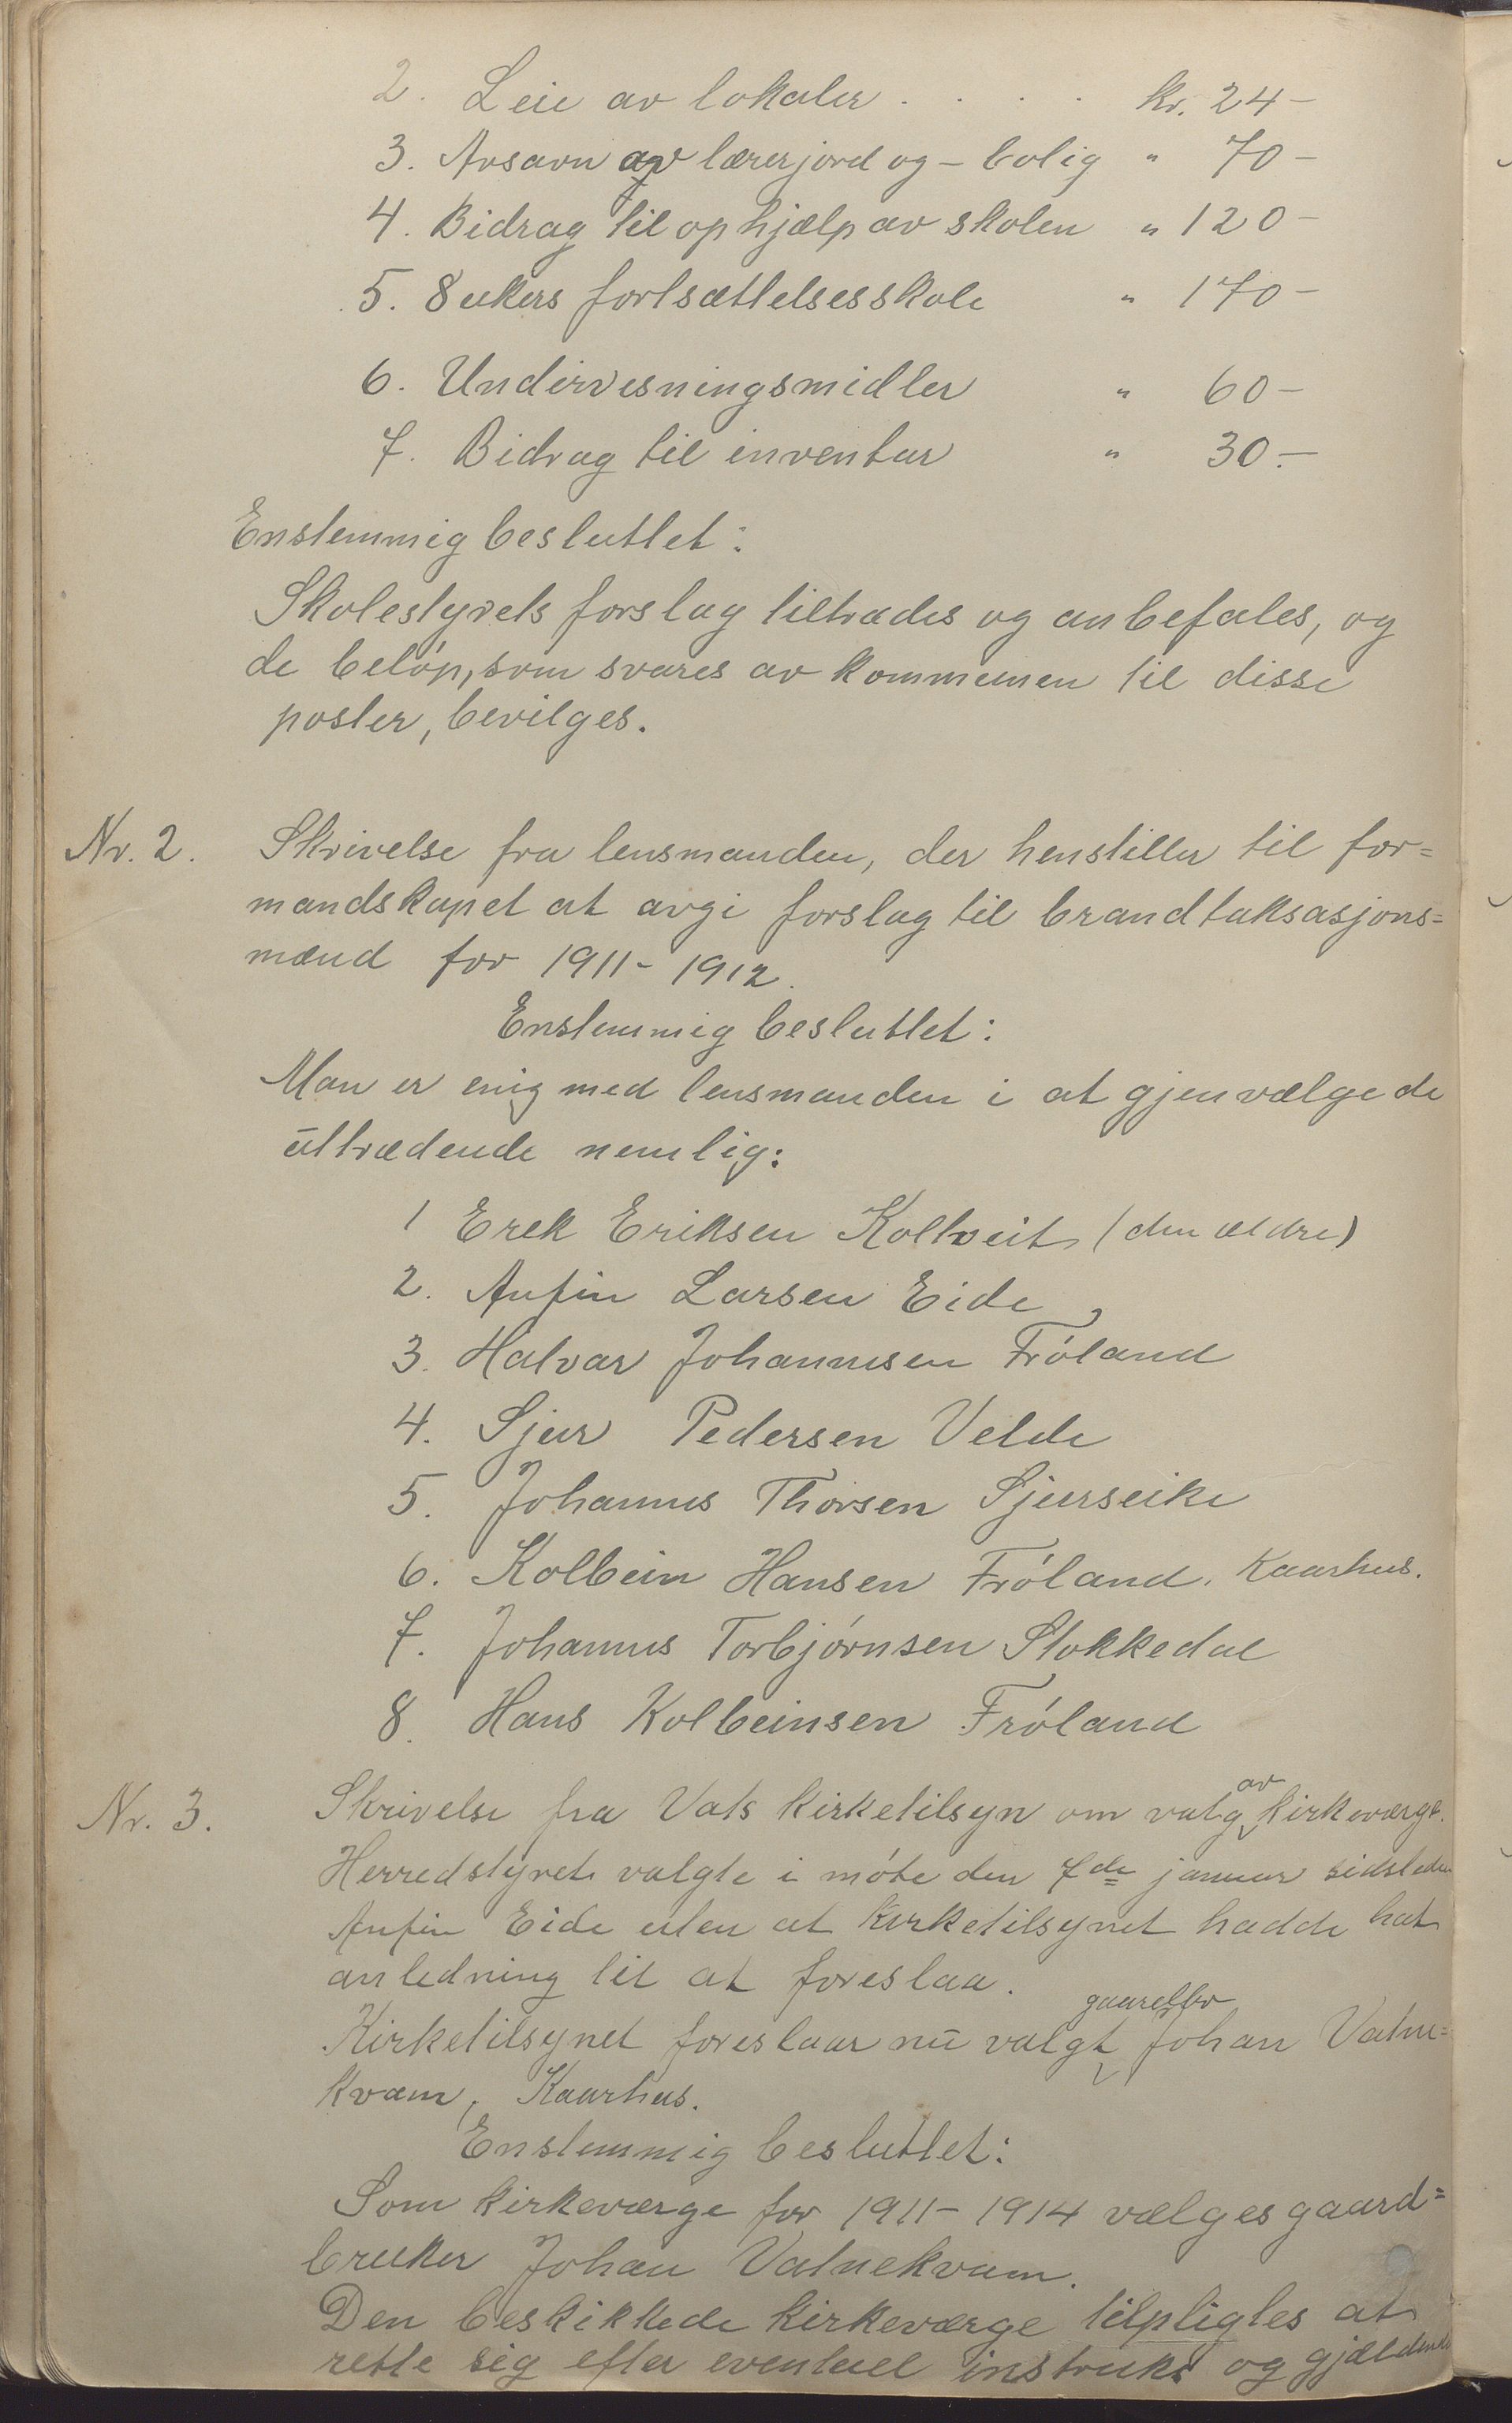 2. Leie av lokaler . . . . kr. 24 –
3. Avsavn av lærerjord og – bolig " 70 –
4. Bidrag til ophjælp av skolen " 120 –
5. 8 ukers fortsættelsesskole " 170 –
6. Undervisningsmidler " 60 –
7. Bidrag til inventar " 30. –
Enstemmig besluttet:
Skolestyrets forslag tiltrædes og anbefales, og
de beløp, som svares av kommunen til disse
poster, bevilges.
Nr. 2. Skrivelse fra lensmanden, der henstiller til for=
mandskapet at avgi forslag til brandtaksasjons=
mænd for 1911 – 1912.
Enstemmig besluttet:
Man er enig med lensmanden i at gjenvælge de
uttrædende nemlig:
1 Erek Eriksen Kolltveit (den ældre)
2. Anfin Larsen Eide
3. Halvar Johannesen Frøland
4. Sjur Pedersen Velde
5. Johannes Thorsen Sjurseike
6. Kolbein Hansen Frøland. Kaarhus.
7. Johannes Torbjørnsen Stokkedal
8. Hans Kolbeinsen Frøland
Nr. 3. Skrivelse fra Vats kirketilsyn om valg av kirkeværge.
Herredstyret valgte i møte den 7de januar sidstleden
Anfin Eide uten at Kirketilsynet hadde hat
anledning til at foreslaa.
Kirketilsynet foreslaar nu valgt gaardbr Johan Vatne=
kvam, Kaarhus.
Enstemmig besluttet:
Som kirkeværge for 1911 – 1914 vælges gaard=
bruker Johan Vatnekvam.
Den beskikkede kirkeværge tilpligtes at
rette sig efter eventuel instruks og gjældende